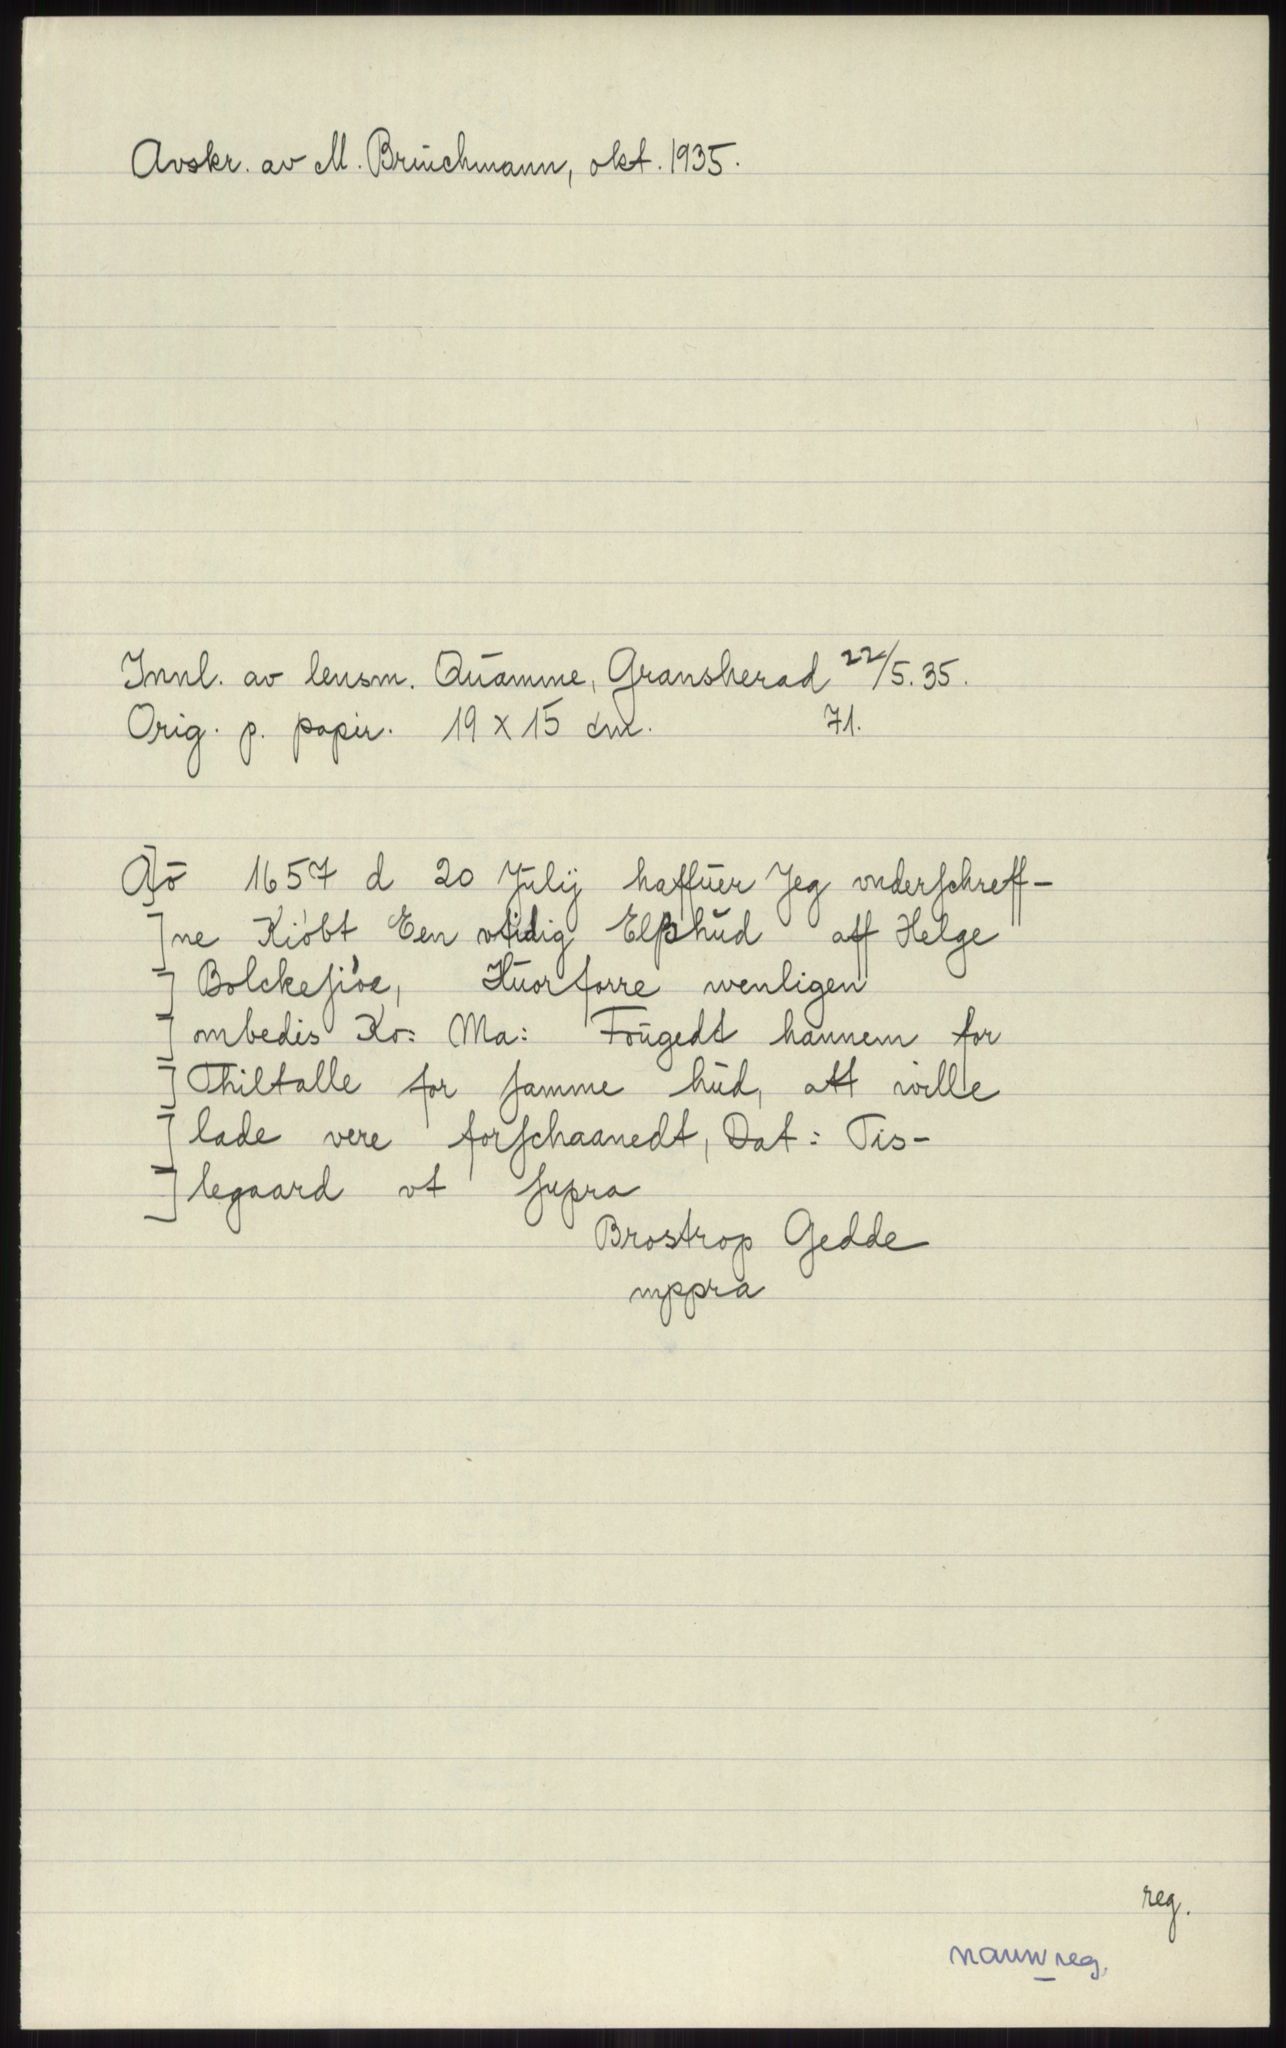 Avskr. av M. Brüchmann, okt. 1935.
Innl. av lensm. Qŭamme, Gransherad 22/5.35.
Orig. p. papir. 19 x 15 cm. 71.
A]ō 1657 d 20 Jŭlÿ haffŭer Jeg vnderschreff-
]ne Kióbt Een vtidig Elsshŭd aff Helge
] Bolckesióe, Hŭorforre wenligen
] ombedis Ko: Ma: Foŭgedt hannem for
] Thiltalle for samme hŭd, att wille
] lade vere forschaanedt, Dat: Tis-
] legaard vt supra
Brostrop Gedde
mppra
reg.
navnreg.